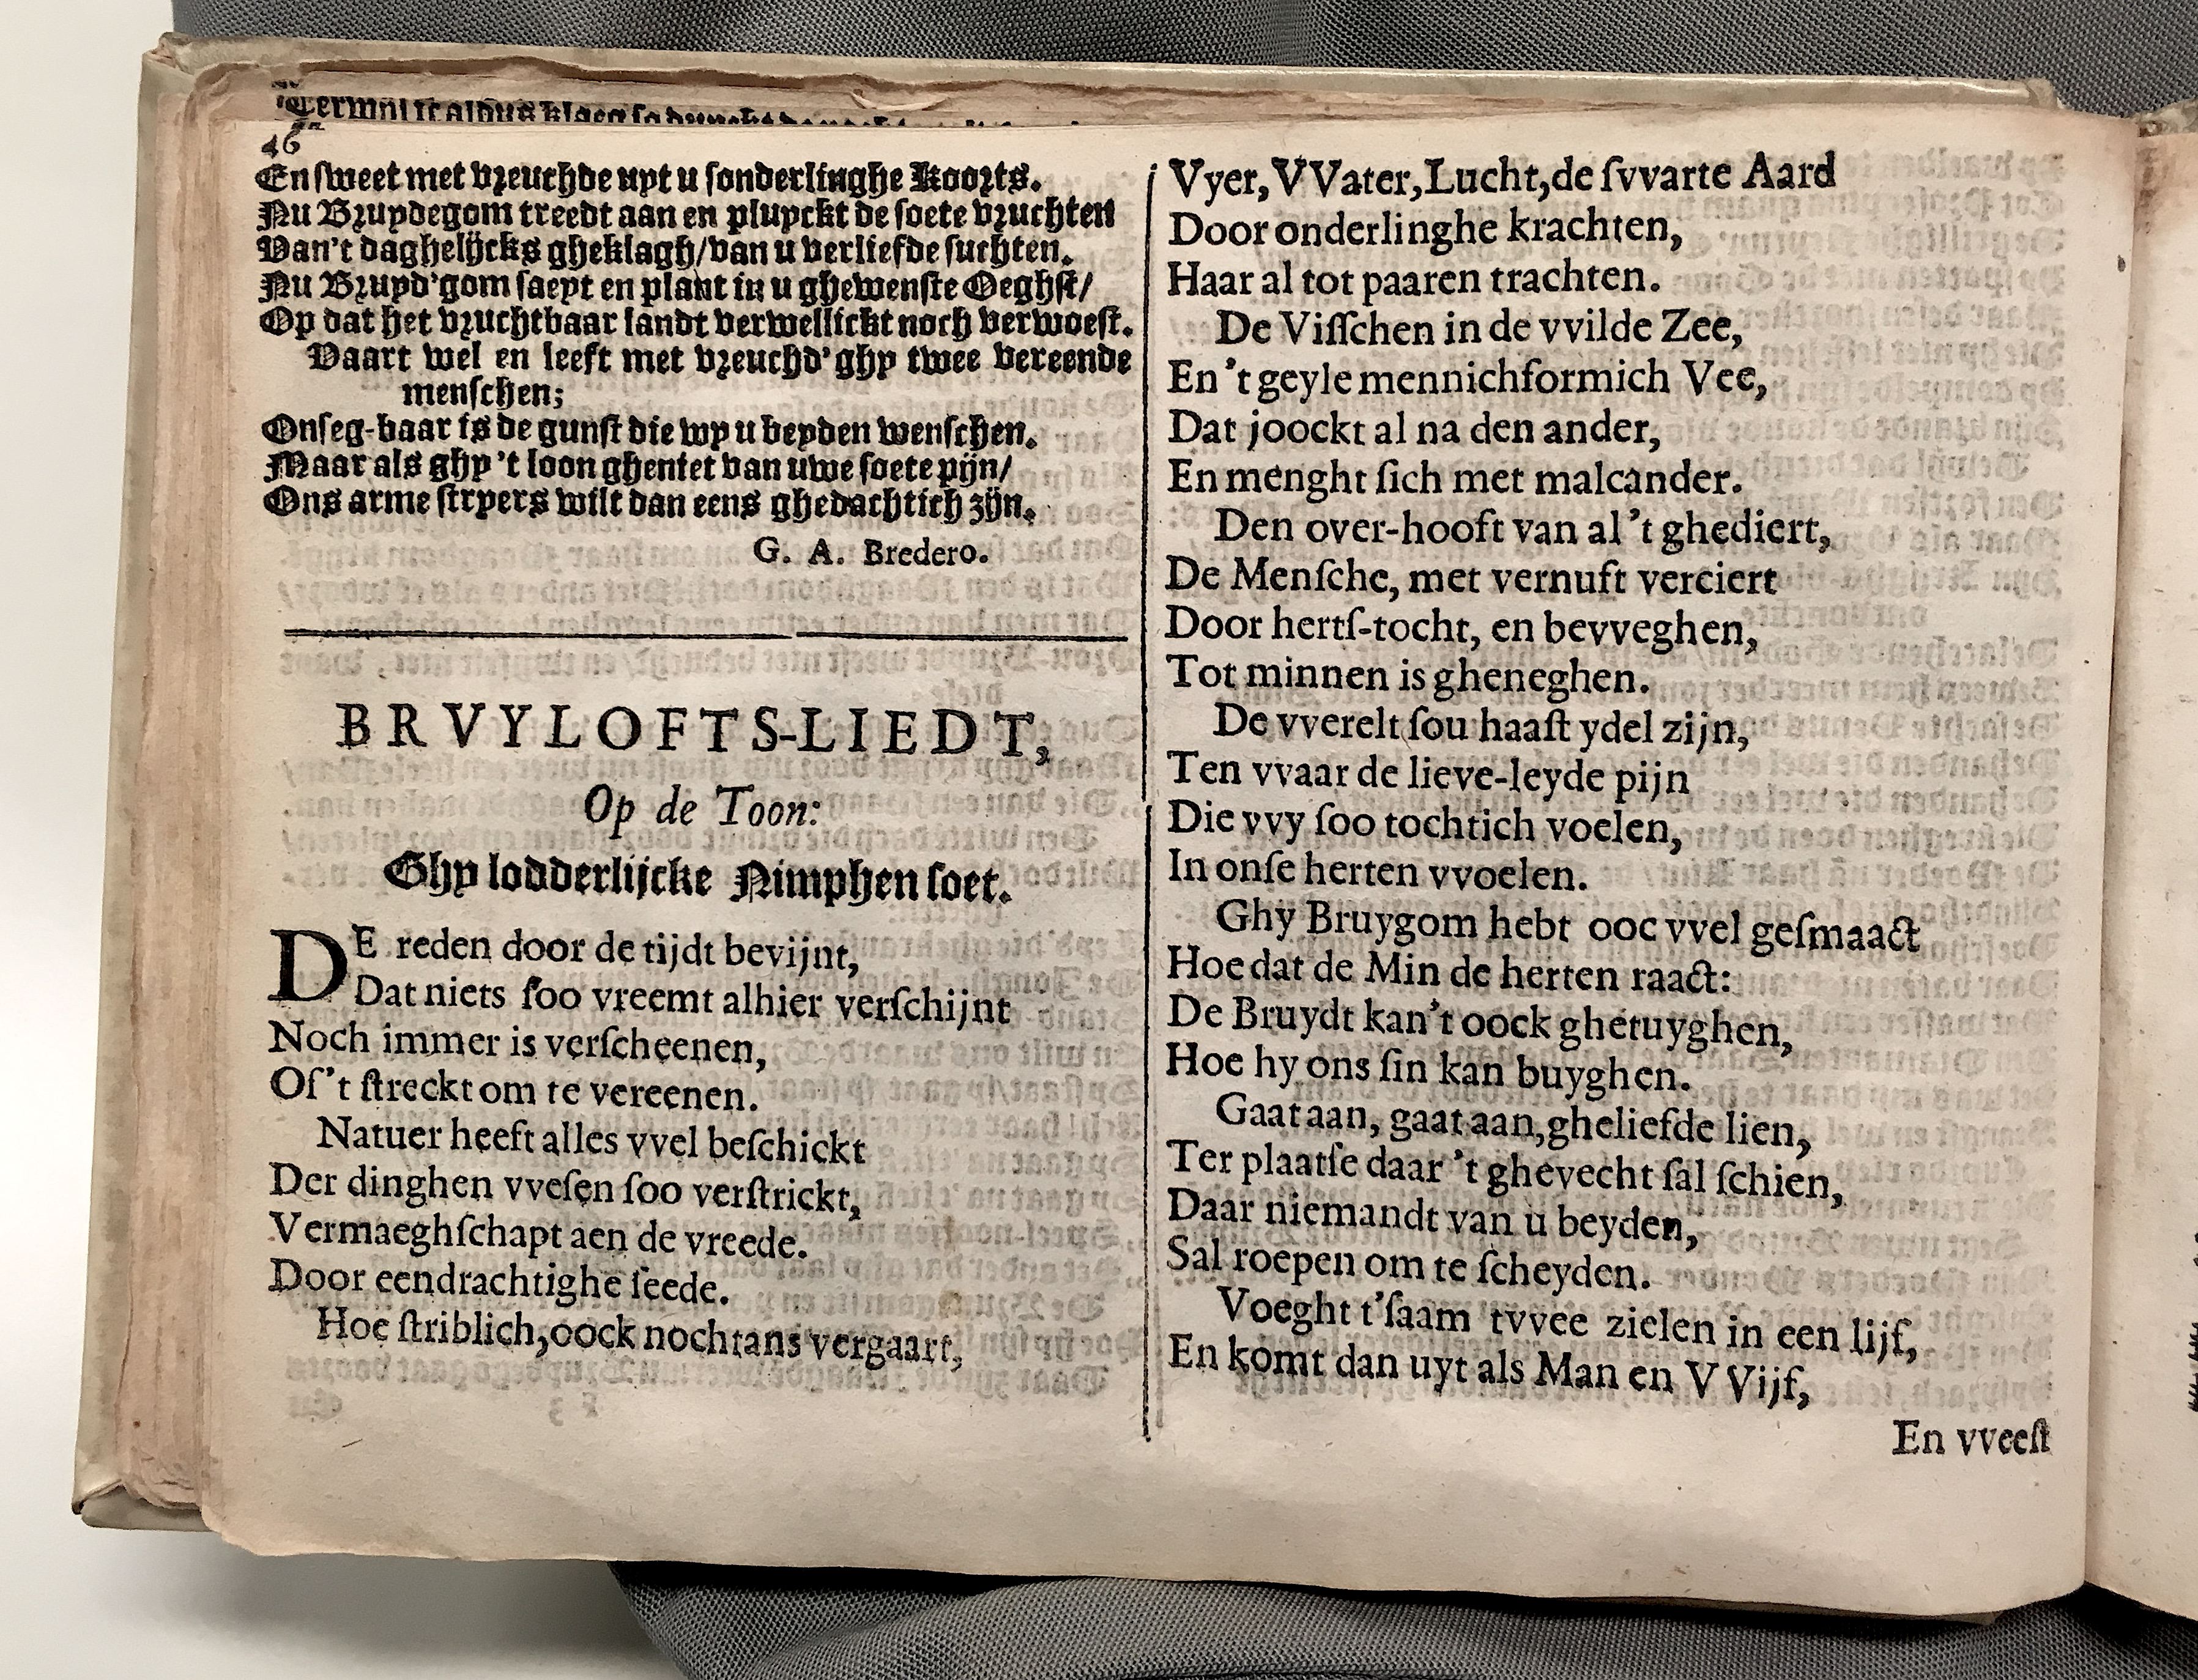 46
En sweet met vreuchde uyt u sonderlinghe Koorts.
Nu Bruydegom treedt aan en pluyckt de soete vruchten
Van't daghelijcks gheklagh/van u verliefde suchten.
Nu Bruyd'gom saeyt en plant in u ghewenste Oeghst/
Op dat het vruchtbaar landt verwellickt noch verwoest.
Vaart wel en leeft met vreuchd' ghy twee vereende
menschen;
Onseg-baar is de gunst die wy u beyden wenschen.
Maar als ghy 't loon gheniet van uwe soete pijn/
Ons arme stryers wilt dan eens ghedachtich zijn.
G. A. Bredero.
BRVYLOFTS-LIEDT,
Op de Toon:
Ghy lodderlijcke Nimphen soet.
DE reden door de tijdt bevijnt,
Dat niets ſoo vreemt alhier verſchijnt
Noch immer is verſcheenen,
Of't ſtreckt om te vereenen.
Natuer heeft alles vvel beſchickt
Der dinghen vveſen ſoo verſtrickt,
Vermaeghſchapt aen de vreede.
Door eendrachtighe ſeede.
Hoe ſtriblich, oock nochtans vergaart,
Vyer, VVater, Lucht, de ſvvarte Aard
Door onderlinghe krachten,
Haar al tot paaren trachten.
De Viſſchen in de vvilde Zee,
En 't geyle mennichformich Vee,
Dat joockt al na den ander,
En menght ſich met malcander.
Den over-hooft van al 't ghediert,
De Menſche, met vernuft verciert
Door hertſ-tocht, en bevveghen,
Tot minnen is gheneghen.
De vverelt ſou haaſt ydel zijn,
Ten vvaar de lieve-leyde pijn
Die vvy ſoo tochtich voelen,
In onſe herten vvoelen.
Ghy Bruygom hebt ooc vvel geſmaact
Hoe dat de Min de herten raact:
De Bruydt kan't oock ghetuyghen,
Hoe hy ons ſin kan buyghen.
Gaat aan, gaat aan, gheliefde lien,
Ter plaatſe daar 't ghevecht ſal ſchien,
Daar niemandt van u beyden,
Sal roepen om te ſcheyden.
Voeght t'ſaam tvvee zielen in een lijf,
En komt dan uyt als Man en VVijf,
En vveeſt